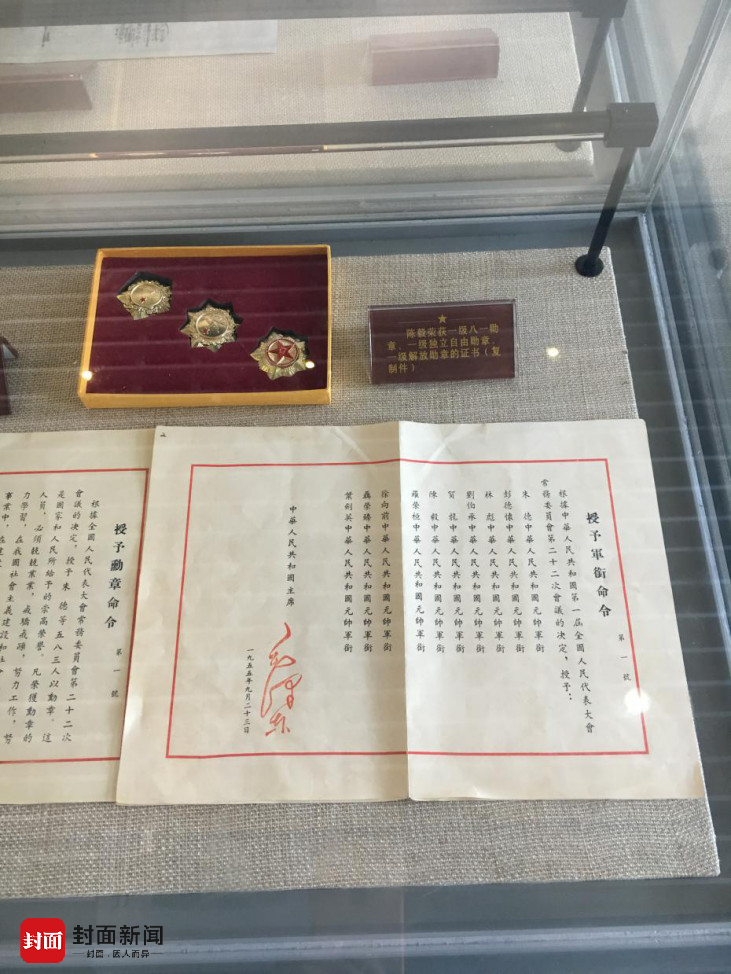 陈毅荣获一级八一勋
章、一级独立自由勋章、
一级解放勋章的证书（复
制件）
授予軍銜命令
第一號
根據中華人民共和國第一屆全國人民代表大會
常務委員會第二十二次會議的决定，授予：
朱德中華人民共和國元帥軍銜
彭德懷中華人民共和國元帥軍銜
林彪中華人民共和國元帥軍銜
劉伯承中華人民共和國元帥軍銜
賀龍中華人民共和國元帥軍銜
陳毅中華人民共和國元帥軍銜
羅榮桓中華人民共和國元帥軍銜
徐向前中華人民共和國元帥軍銜
聶榮臻中華人民共和國元帥軍銜
葉劍英中華人民共和國元帥軍銜
中華人民共和國主席
毛澤東
一九五五年九月二十三日
授予勳章命令
第一號
根據全國人民代表大會常務委員會第二十二次
會議的决定，授予朱德等五八三人以勳章。這
是國家和人民所給予的崇高榮譽。凡榮獲勳章的
人員，必須兢兢業業，戒驕戒躁，努力工作，努
力學習，在我國社會主義建設和
事業中，
封面
封面新闻
封面，因人而异